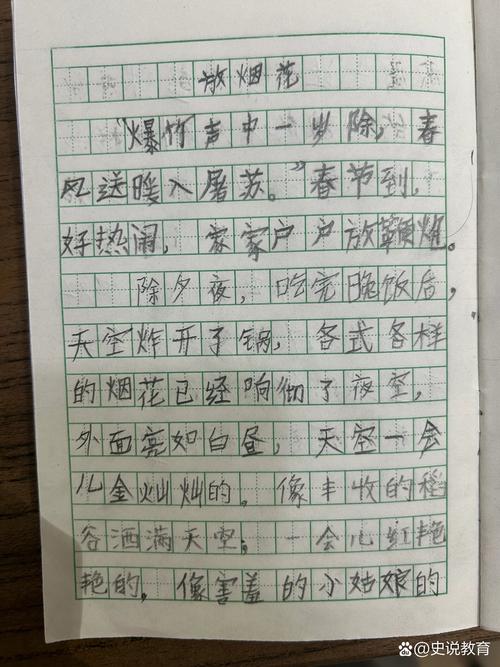 放烟花
“爆竹声中一岁除，春
风送暖入屠苏。”春节到，
好热闹，家家户户放鞭炮。
除夕夜，吃完晚饭后，
天空炸开了锅，各式各样
的烟花已经响彻了夜空，
外面亮如白昼，天空一会
儿金灿灿的，像丰收的稻
谷洒满天空；一会儿红艳
艳的，像害羞的小姑娘的
史说教育